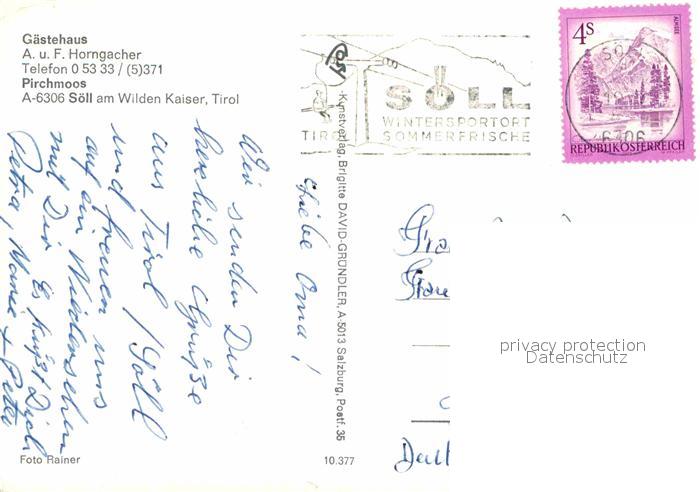 Gästehaus
A. u. F. Horngacher
Telefon 0 53 33 / (5)371
Pirchmoos
A-6306 Söll am Wilden Kaiser, Tirol
SÖLL
WINTERSPORTORT
SOMMERFRISCHE
TIROL
4S
ALMSEE
6306
REPUBLIK ÖSTERREICH
Liebe Oma!
Wir senden Dir
herzliche Grüße
aus Tirol / Söll
und freuen uns
auf ein Wiedersehen
mit Dir. Es küßt Dich
Petra, Maria + Peter
Kunstverlag, Brigitte DAVID-GRÜNDLER, A-5013 Salzburg, Postf. 35
privacy protection
Datenschutz
Foto Rainer
10.377